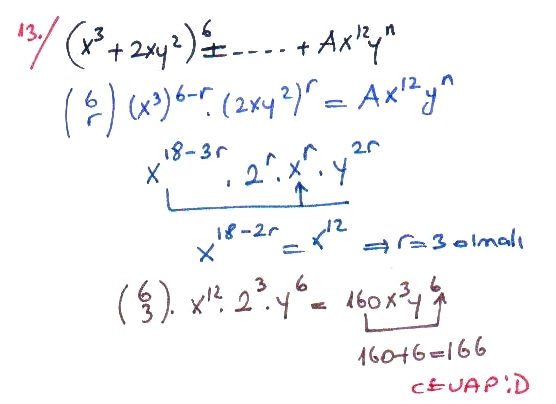 13./ (x³ + 2xy²)⁶ = ---- + Ax¹²yⁿ
(6 r) (x³)⁶⁻ʳ · (2xy²)ʳ = Ax¹²yⁿ
x¹⁸⁻³ʳ · 2ʳ · xʳ · y²ʳ
x¹⁸⁻²ʳ = x¹² ⇒ r = 3 olmalı
(6 3) · x¹² · 2³ · y⁶ = 160x³y⁶
160+6=166
CEVAP:D